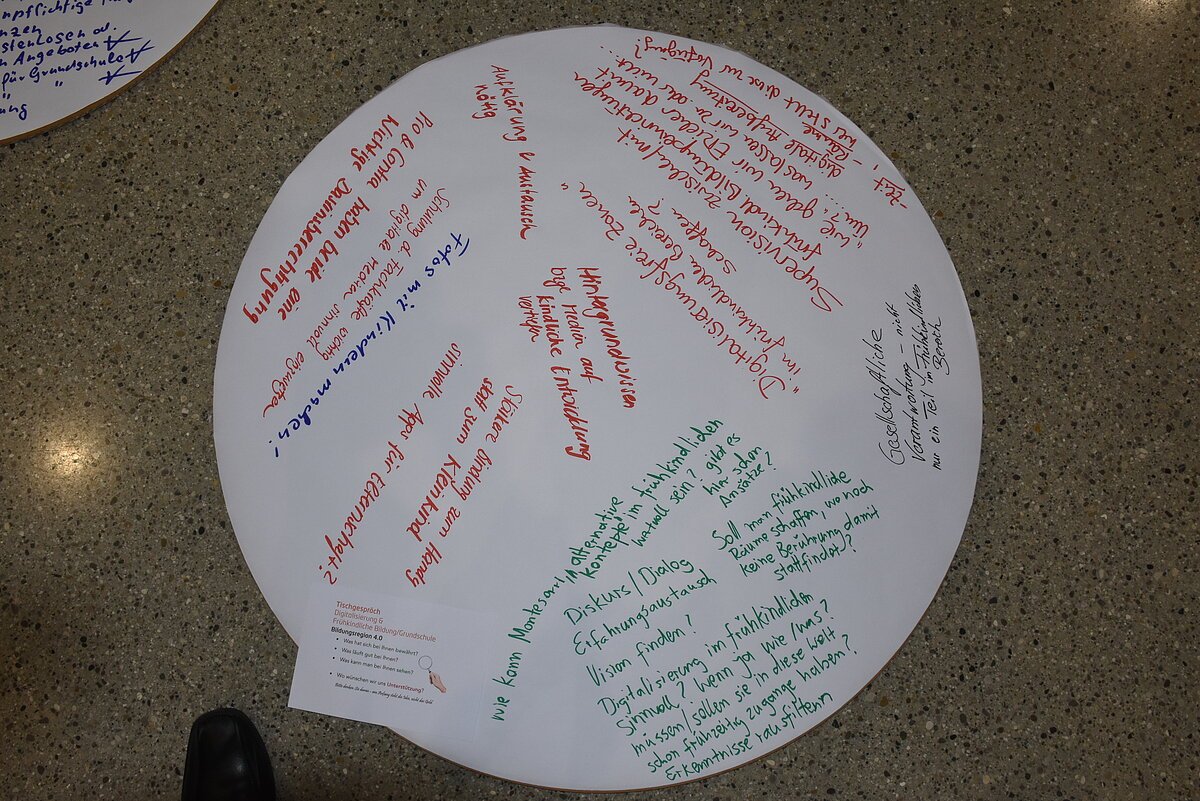 npflichtige
nzen
stenlosen od.
n Angeboten
für Grundschule
"
ung
Aufklärung & Austausch
nötig
Pro & Contra haben beide eine
Wichtige Daseinsberechtigung
Schulung d. Fachkräfte wichtig
um digitale Medien sinnvoll
Fotos mit Kindern machen!
sinnvolle Apps für Elternschaft?
Stärkere Bindung zum Handy
statt zum Kleinkind
Hintergrundwissen
bzgl. Medien auf
kindliche Entwicklung
"Digitalisierungsfreie Zonen"
im frühkindlichen Bereich
schaffen?
Supervision zwischen/mit
frühkindl. Bildungseinrichtungen
"wie gehen wir Erzieher damit
um?", was lassen wir zu, was nicht...
- digitale Aufbereitung
- Räume
- Zeit, wer stellt diese zur Verfügung?
Gesellschaftliche
Verantwortung – nicht
nur ein Teil im frühkindlichen
Bereich
Wie kann Montessori in alternative
Konzepte im frühkindlichen
wertvoll sein? gibt es
hier schon
Ansätze?
Soll man frühkindliche
Räume schaffen, wo noch
keine Berührung damit
stattfindet?
Diskurs/Dialog
Erfahrungsaustausch
Vision finden?
Digitalisierung im frühkindlichen
Sinnvoll? Wenn ja wie/was?
müssen/sollen sie in diese Welt
schon frühzeitig zugange haben?
Erkenntnisse rausfiltern
Tischgespräch
Digitalisierung &
Frühkindliche Bildung/Grundschule
Bildungsregion 4.0
• Was hat sich bei Ihnen bewährt?
• Was läuft gut bei Ihnen?
• Was kann man bei Ihnen sehen?
• Wo wünschen wir uns Unterstützung?